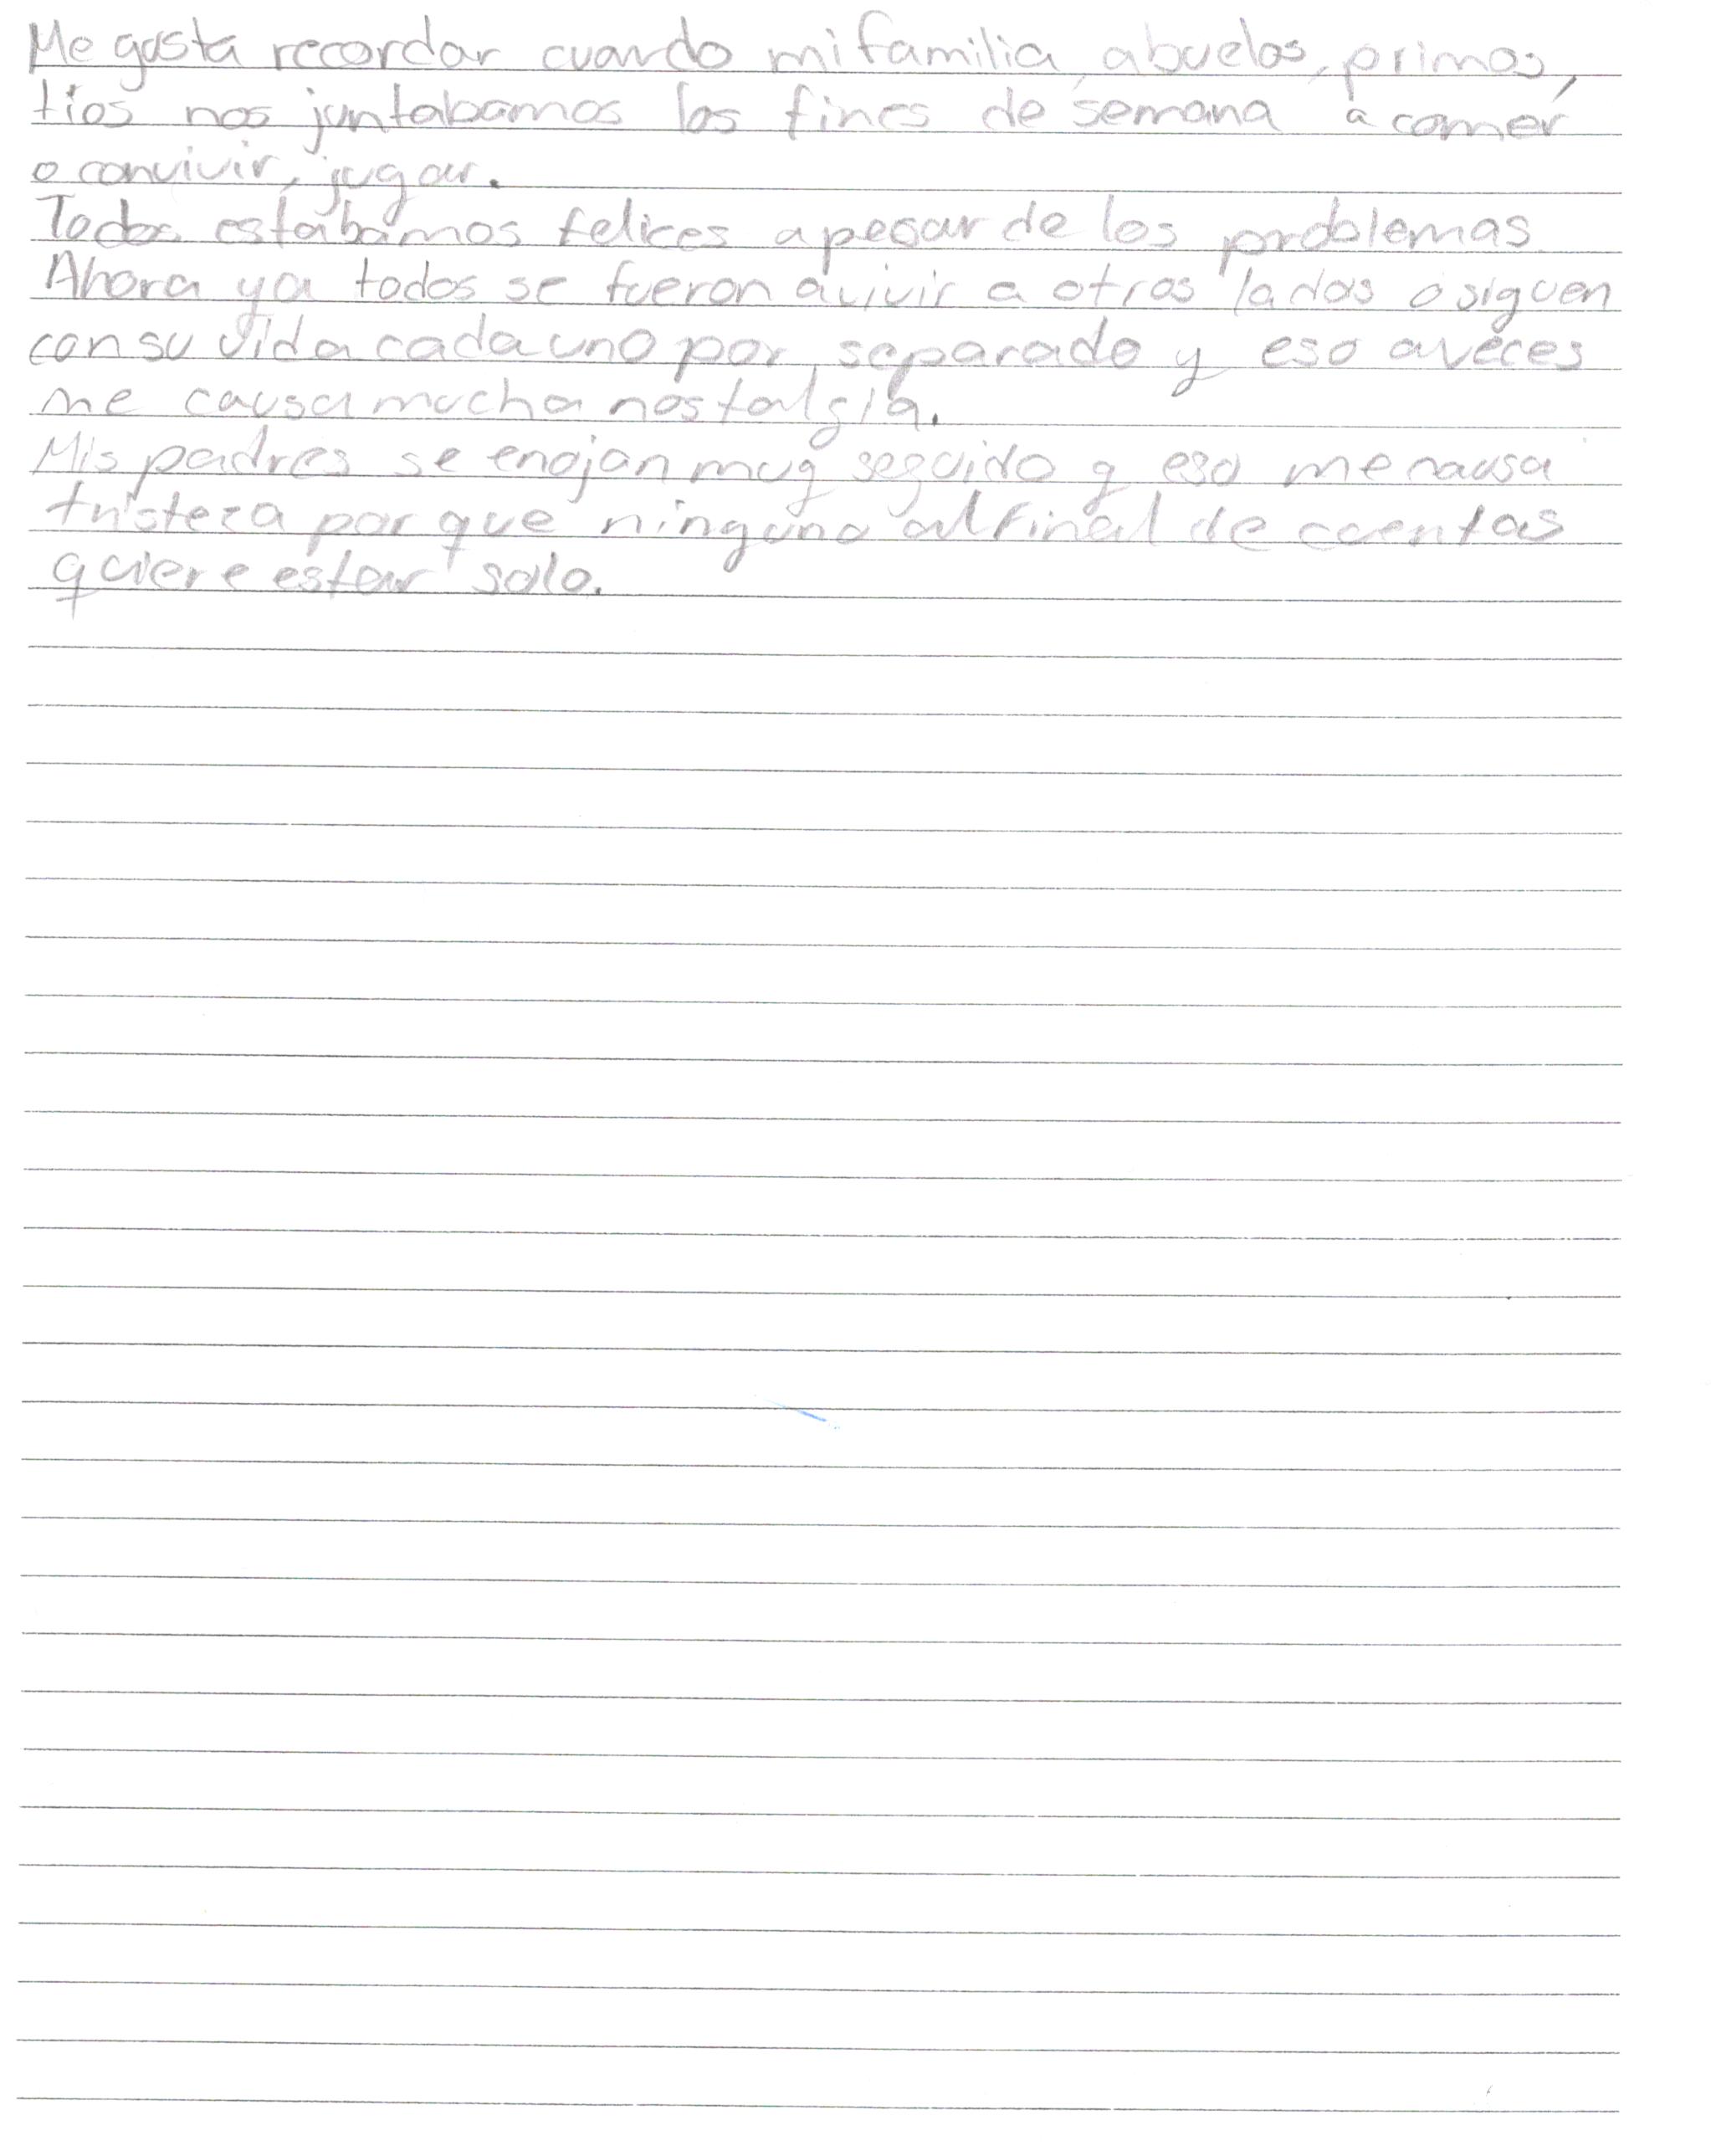 Me gusta recordar cuando mi familia, abuelos, primos,
tios nos juntabamos los fines de semana a comer
o convivir, jugar.
Todos estabamos felices apesar de los problemas
Ahora ya todos se fueron a vivir a otros lados o siguen
con su vida cada uno por separado y eso aveces
me causa mucha nostalgia.
Mis padres se enojan muy seguido y eso me causa
tristeza por que ninguno al final de cuentas
quiere estar solo.